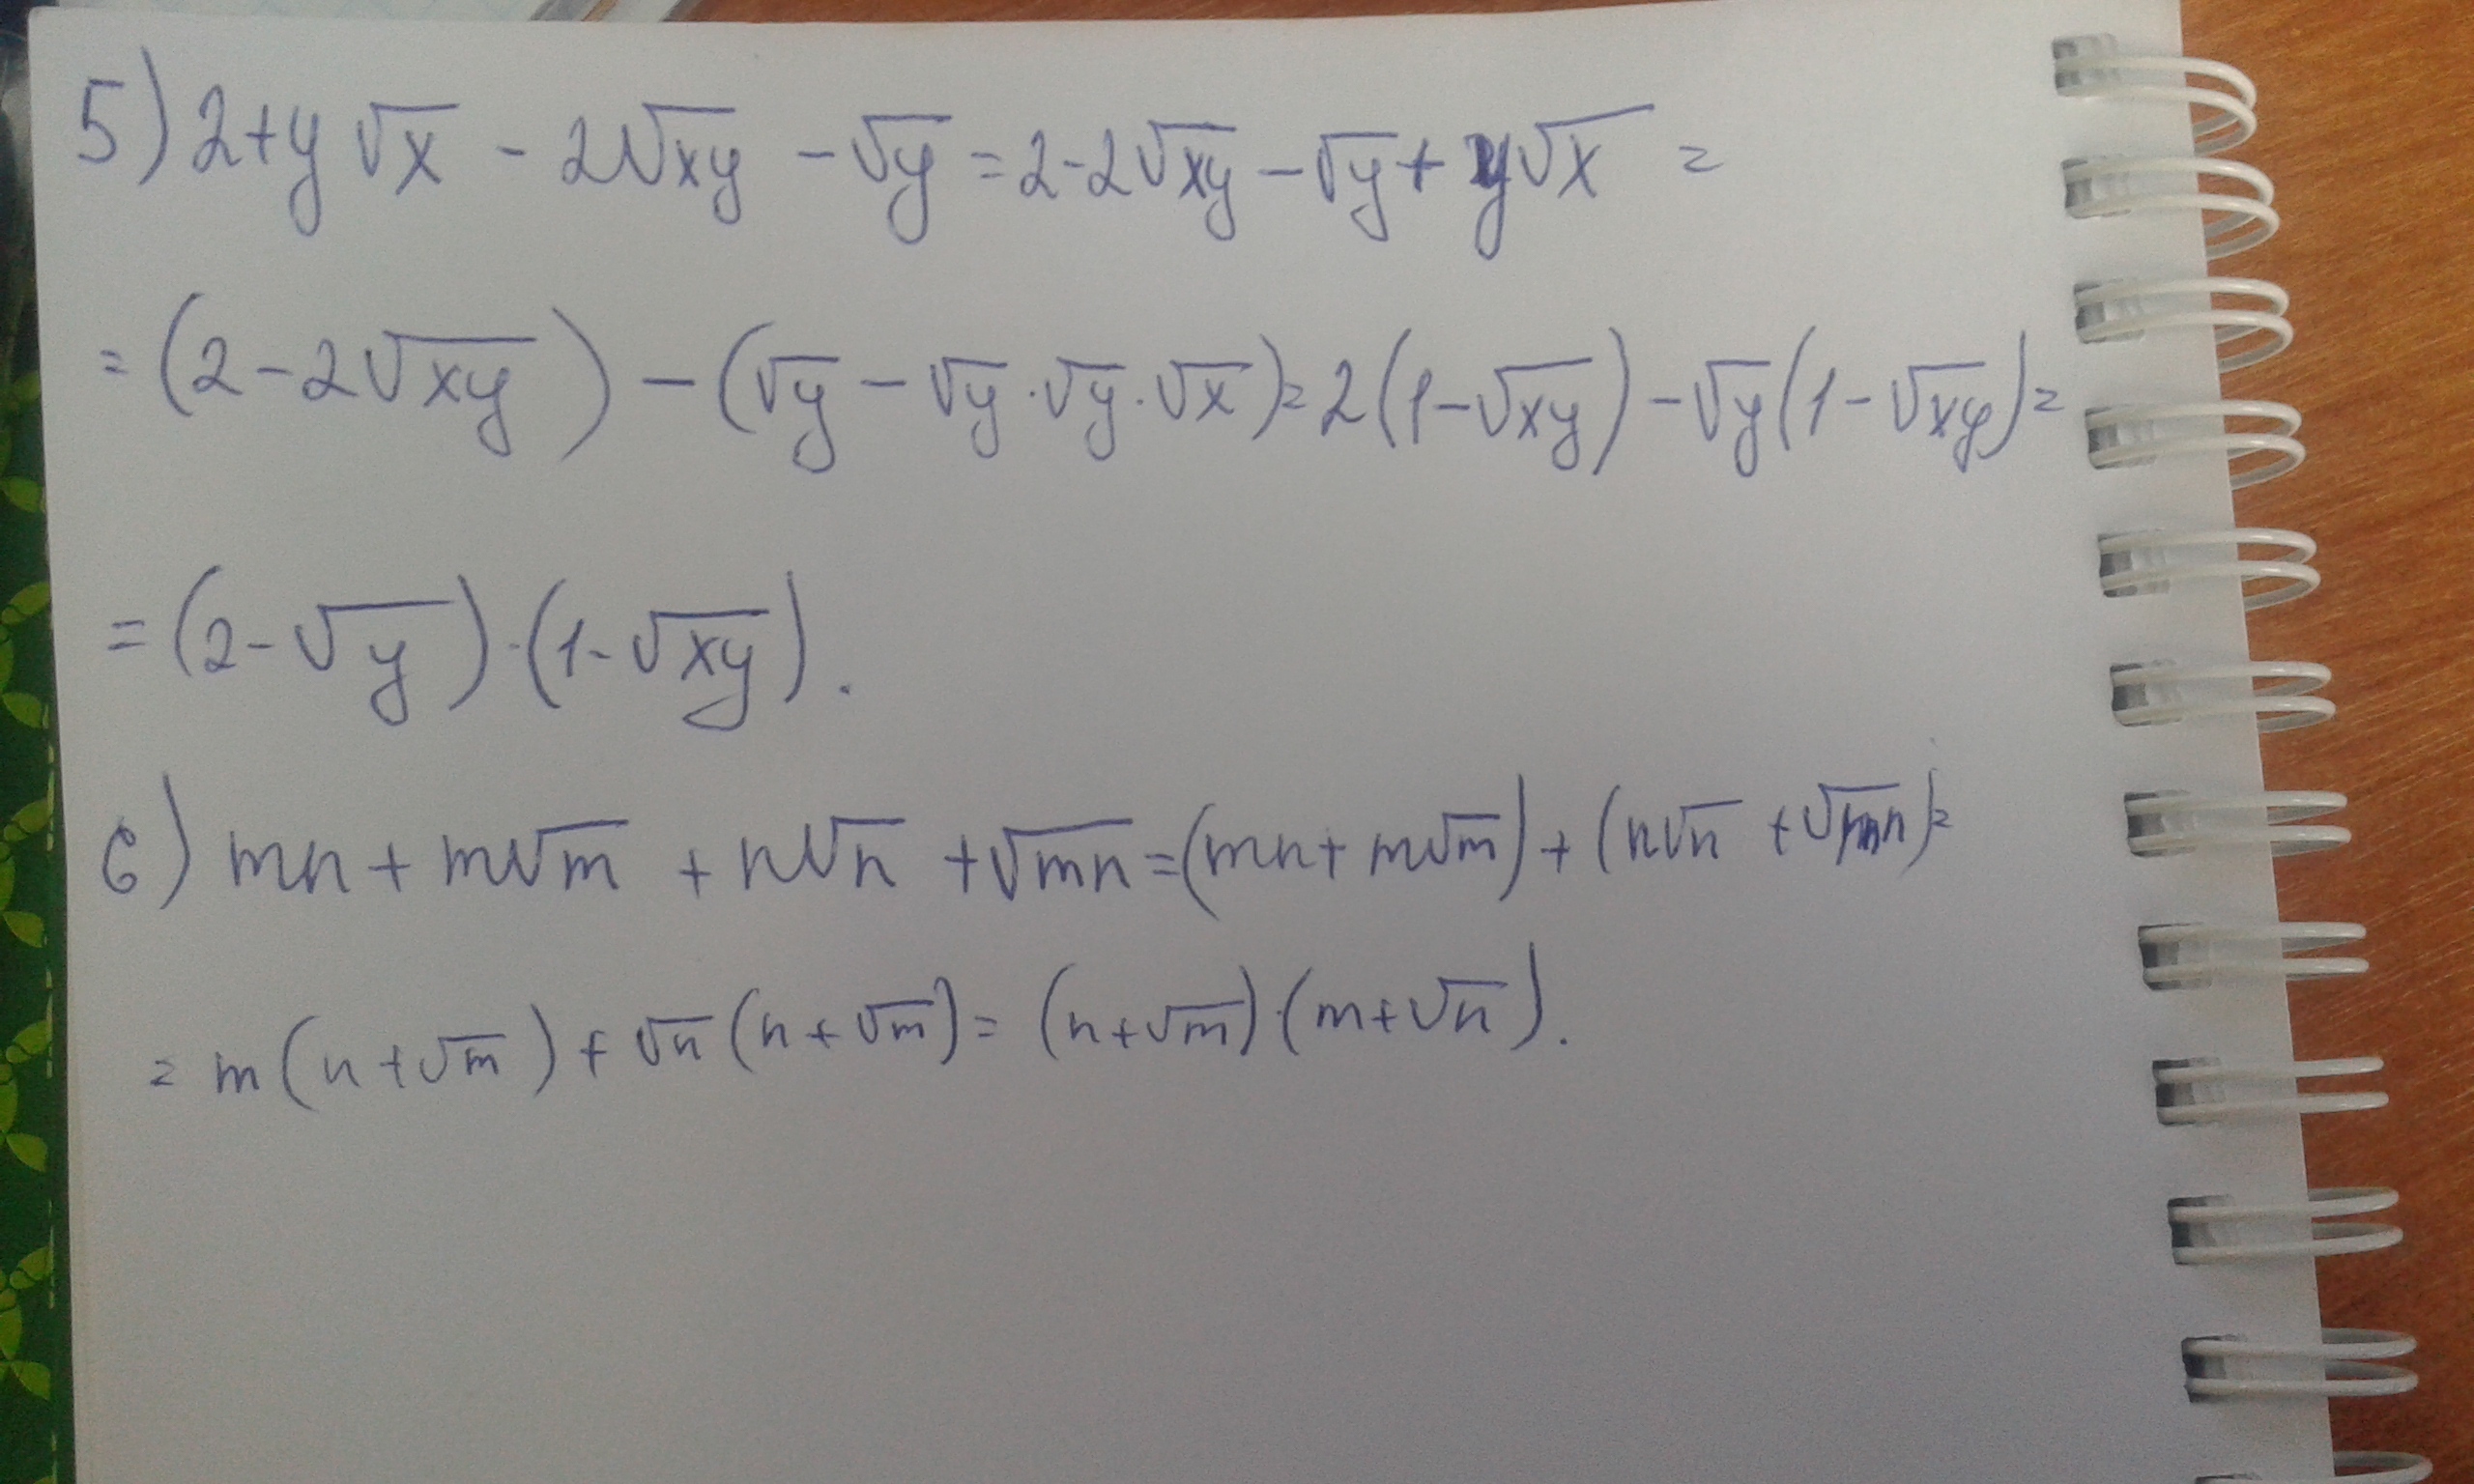 5) 2+y√x - 2√xy - √y = 2-2√xy - √y + y√x =
= (2-2√xy) - (√y - √y·√y·√x) = 2(1-√xy) - √y(1-√xy) =
= (2-√y)·(1-√xy).
6) mn + m√m + n√n + √mn = (mn + m√m) + (n√n + √mn) =
= m(n+√m) + √n(n+√m) = (n+√m)·(m+√n).